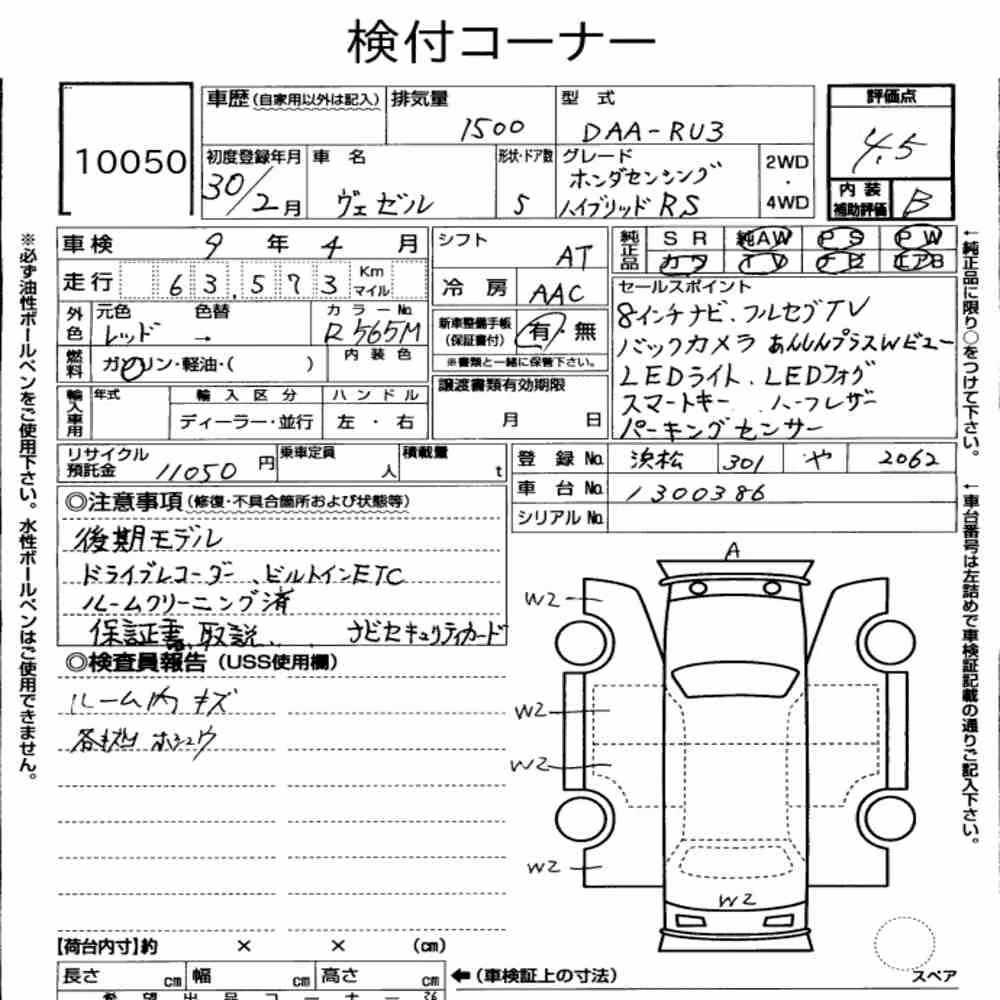 検付コーナー
10050
車歴(自家用以外は記入) 排気量 1500 型式 DAA-RU3
評価点 4.5
初度登録年月 30/2月 車名 ヴェゼル 形状・ドア数 5 グレード ホンダセンシング ハイブリッド RS 2WD・4WD
内装補助評価 B
車検 9年4月
シフト AT
純正品 SR 純AW PS PW
カワ TV ナビ エアB
走行 63,573 Km マイル
冷房 AAC
セールスポイント
8インチナビ、フルセグTV
バックカメラ あんしんプラスWビュー
LEDライト、LEDフォグ
スマートキー、ハーフレザー
パーキングセンサー
外色 元色 レッド 色替 → カラーNo. R565M
新車整備手帳(保証書付) 有・無
※書類と一緒に保管下さい。
燃料 ガソリン・軽油・( ) 内装色
譲渡書類有効期限 月 日
輸入車用 年式 輸入区分 ハンドル
ディーラー・並行 左・右
リサイクル預託金 11050円 乗車定員 人 積載量 t
登録No. 浜松 301 や 2062
車台No. 1300386
シリアルNo.
◎注意事項(修復・不具合箇所および状態等)
後期モデル
ドライブレコーダー、ビルトインETC
ルームクリーニング済
保証書、取説、 ナビセキュリティカード
◎検査員報告(USS使用欄)
ルーム内 キズ
ホシュウ
A
W2
W2
W2
W2
W2
【荷台内寸】約 × × (cm)
長さ cm 幅 cm 高さ cm ←(車検証上の寸法)
スペア
希望出品コーナー
※必ず油性ボールペンをご使用下さい。水性ボールペンはご使用できません。
←純正品に限り○をつけて下さい。
←車台番号は左詰めで車検証記載の通りご記入下さい。